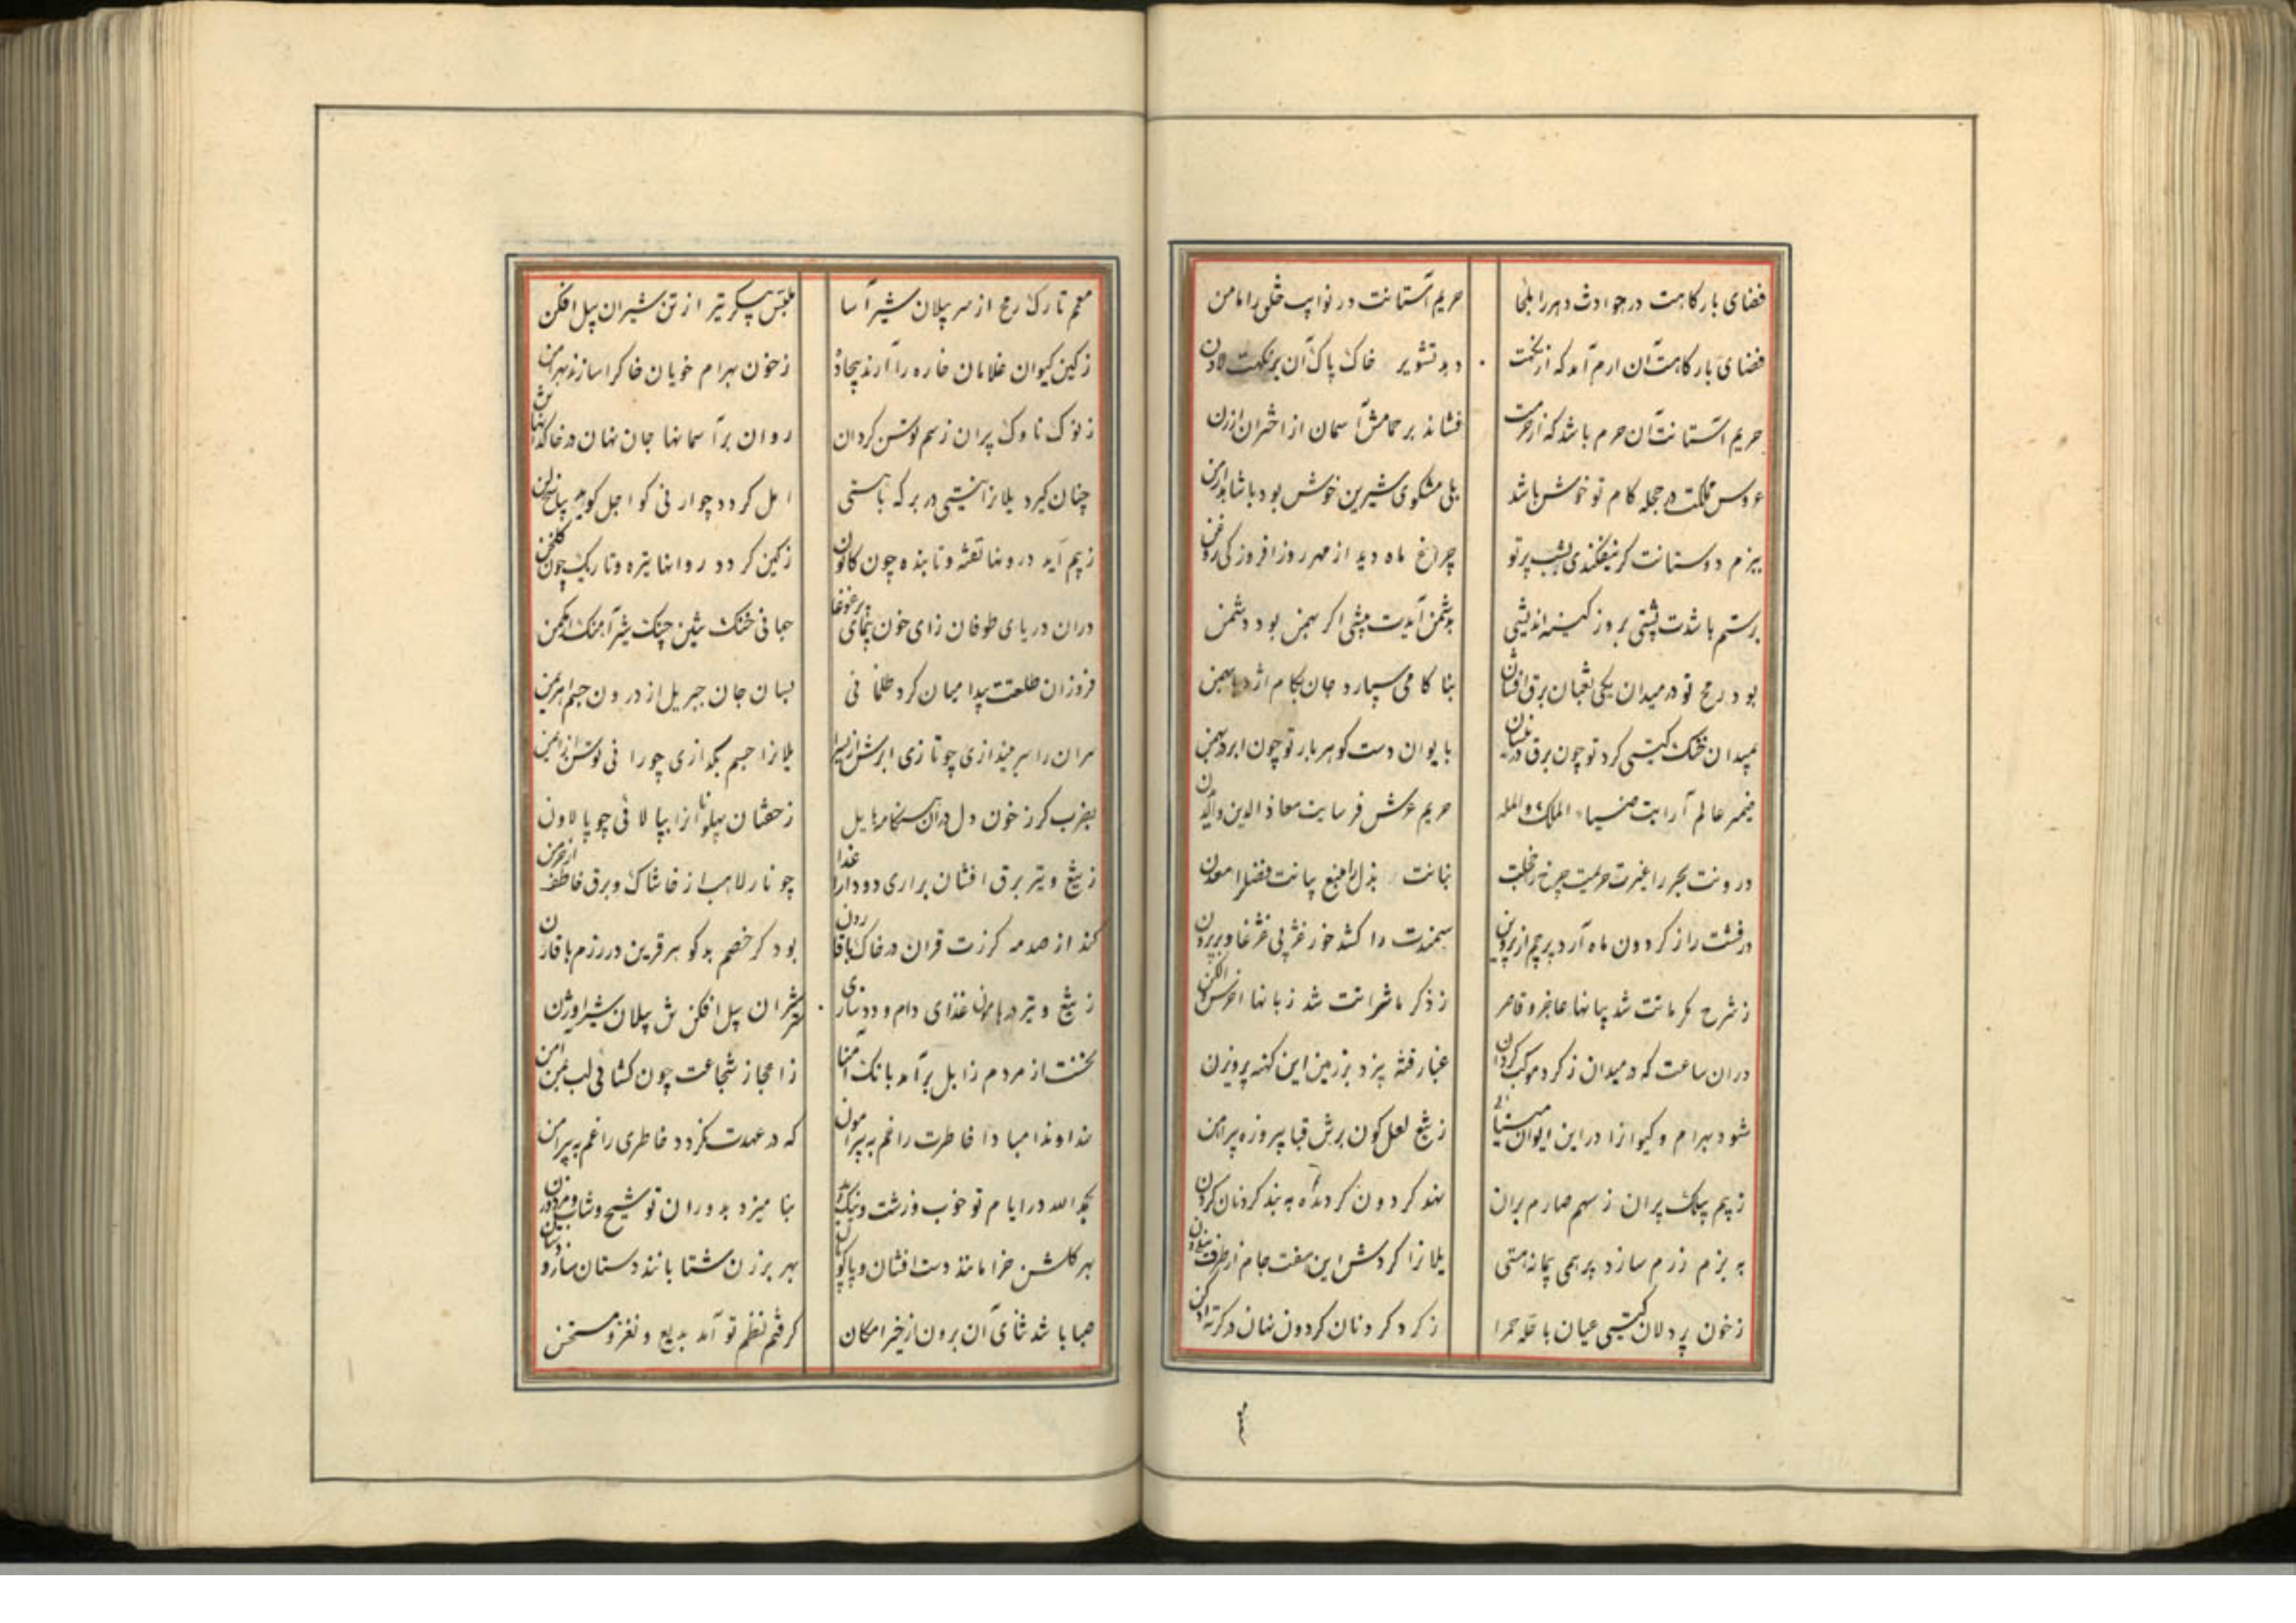 فضای بارگاهت در حوادث دهر را ملجا
حریم آستانت در نوایب خلق را مامن
فضای بارگاهت آن ارم آمد که از نکهت
دهد تشویر خاک پاک آن بر نکهت لادن
حریم آستانت آن حرم باشد که از حرمت
فشاند بر حمامش آسمان از اختران ارزن
عروس مملکت در حجله کام تو خوش باشد
بلی مشکوی شیرین خوش بود با شاهد ارمن
ببزم دوستانت گر نیفکندی بشب پرتو
چراغ ماه دید از مهر روز افروز کی روغن
برستم باشدت پشتی بروز کینه اندیشی
بدشمن آیدت پیشی اگر بهمن بود دشمن
بود رمح تو در میدان یکی ثعبان برق افشان
بناکامی سپارد جان بکام اژدها بهمن
بمیدان خنک گیتی گرد تو چون برق در نیسان
بایوان دست گوهر بار تو چون ابر در بهمن
ضمیر عالم آرایت ضیاء الملک و المله
حریم عرش فرسایت معاذ الدین والایمن
درونت بحر را غیرت حریمت چرخ را خجلت
بنانت بذل را منبع بیانت فضل را معدن
درفشت را ز گردون ماه آرد پرچم از پروین
سمندت را کشد خور غژ پی غژغا و پر پرن
ز شرح مکرماتت شد بیانها عاجز و قاصر
ز ذکر ماثراتت شد زبانها اخرس و الکن
در آن ساعت که در میدان ز گرد موکب گردان
غبار فتنه بیزد بر زمین این کهنه پرویزن
شود بهرام و کیوان را در این ایوان مینائی
ز تیغ لعل گون برش قبا پیروزه پیراهن
ز بیم بیلک پران ز سهم صارم بران
نهد گردون گردنده به بند گردنان گردن
به بزم رزم سازد پر همی پیمانه هستی
یلان را گردش این هفت جام از طرف نیلی دن
ز خون پردلان گیتی عیان با حله حمرا
ز گرد گردنان گردون نهان در کرته ادکن
معمم تارک رمح از سر پیلان شیر آسا
ملبس پیکر تیر از تن شیران پیل افکن
ز کین کیوان غلامان خاره را آرند بیجاده
ز خون بهرام خویان خاک را سازند بهرامن
ز نوک ناوک پران ز سم توسن گردان
روان بر آسمانها جان نهان در خاکدانها تن
چنان گیرد یلان را نیستی در بر که بایستی
امل گردد چو ارنی گو اجل گوید بپاسخ لن
ز بیم آید درونها تفته و تابنده چون کانون
ز کین گردد روانها تیره و تاریک چون گلخن
در آن دریای طوفان زای خون پیمای پر غوغا
جهانی خنک پیلتن چنگ شیر آهنگ شیر اوژن
فروزان طلعتت پیدا میان گرد ظلمانی
بسان جان جبریل از درون جسم اهریمن
سران را سر بیندازی چو تازی ابرش از یسرا
یلان را جسم بگدازی چو رانی توسن از ایمن
بضرب گرز خون دل در آن هنگامه هایل
ز خفتان پهلوانان را بپالائی چو پالاون
ز تیغ و تیر برق افشان براری دود از اعدا
چو نار لاهب از خاشاک و برق خاطف از خرمن
کند از صدمه گرزت قران در خاک با قارون
بود گر خصم بدگوهر قرین در رزم با قارن
ز تیغ و تیر در هامون غذای دام و دد سازی
سر شیران پیل افکن تن پیلان شیر اوژن
نخست از مردم زابل برآمد بانگ آمنا
ز اعجاز شجاعت چون گشائی لب بمن امن
خداوندا مبادا خاطرت را غم به پیرامون
که در عهدت نگردد خاطری را غم به پیرامن
بحمدالله در ایام تو خوب و زشت و نیک و بد
بنامیزد بدوران تو شیخ و شاب و مرد و زن
بهر گلشن خرامانند دست افشان و پا کوبان
بهر برزن شتابانند دستان ساز و دستان زن
صبا باشد ثنای آن برون از خیر امکان
گرفتم نظم تو آمد بدیع و نغز و مستحسن